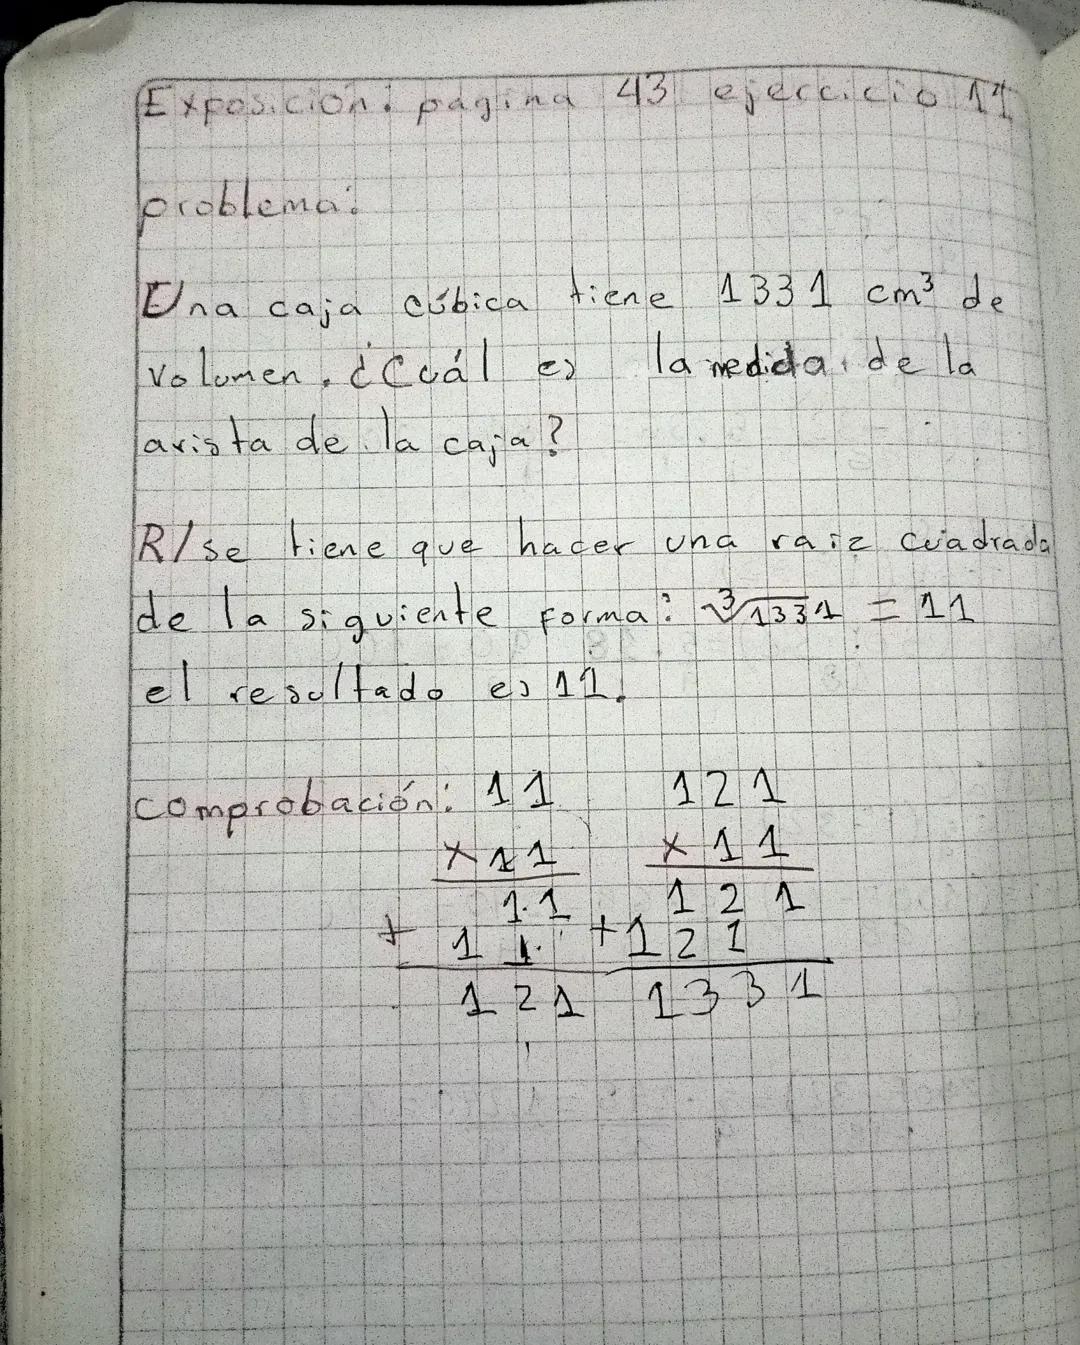 Exposición: página 43 ejercicio 11
problema:
Una caja cúbica tiene 1331 cm³ de
volumen. ¿Cuál es la medida de la
arista de la caja?
R/se tiene que hacer una raiz cuadrada
de la siguiente forma: ∛1331 = 11
el resultado es 11.
comprobación: 11 121
x 11 x 11
11 121
+ 11 + 121
121 1331